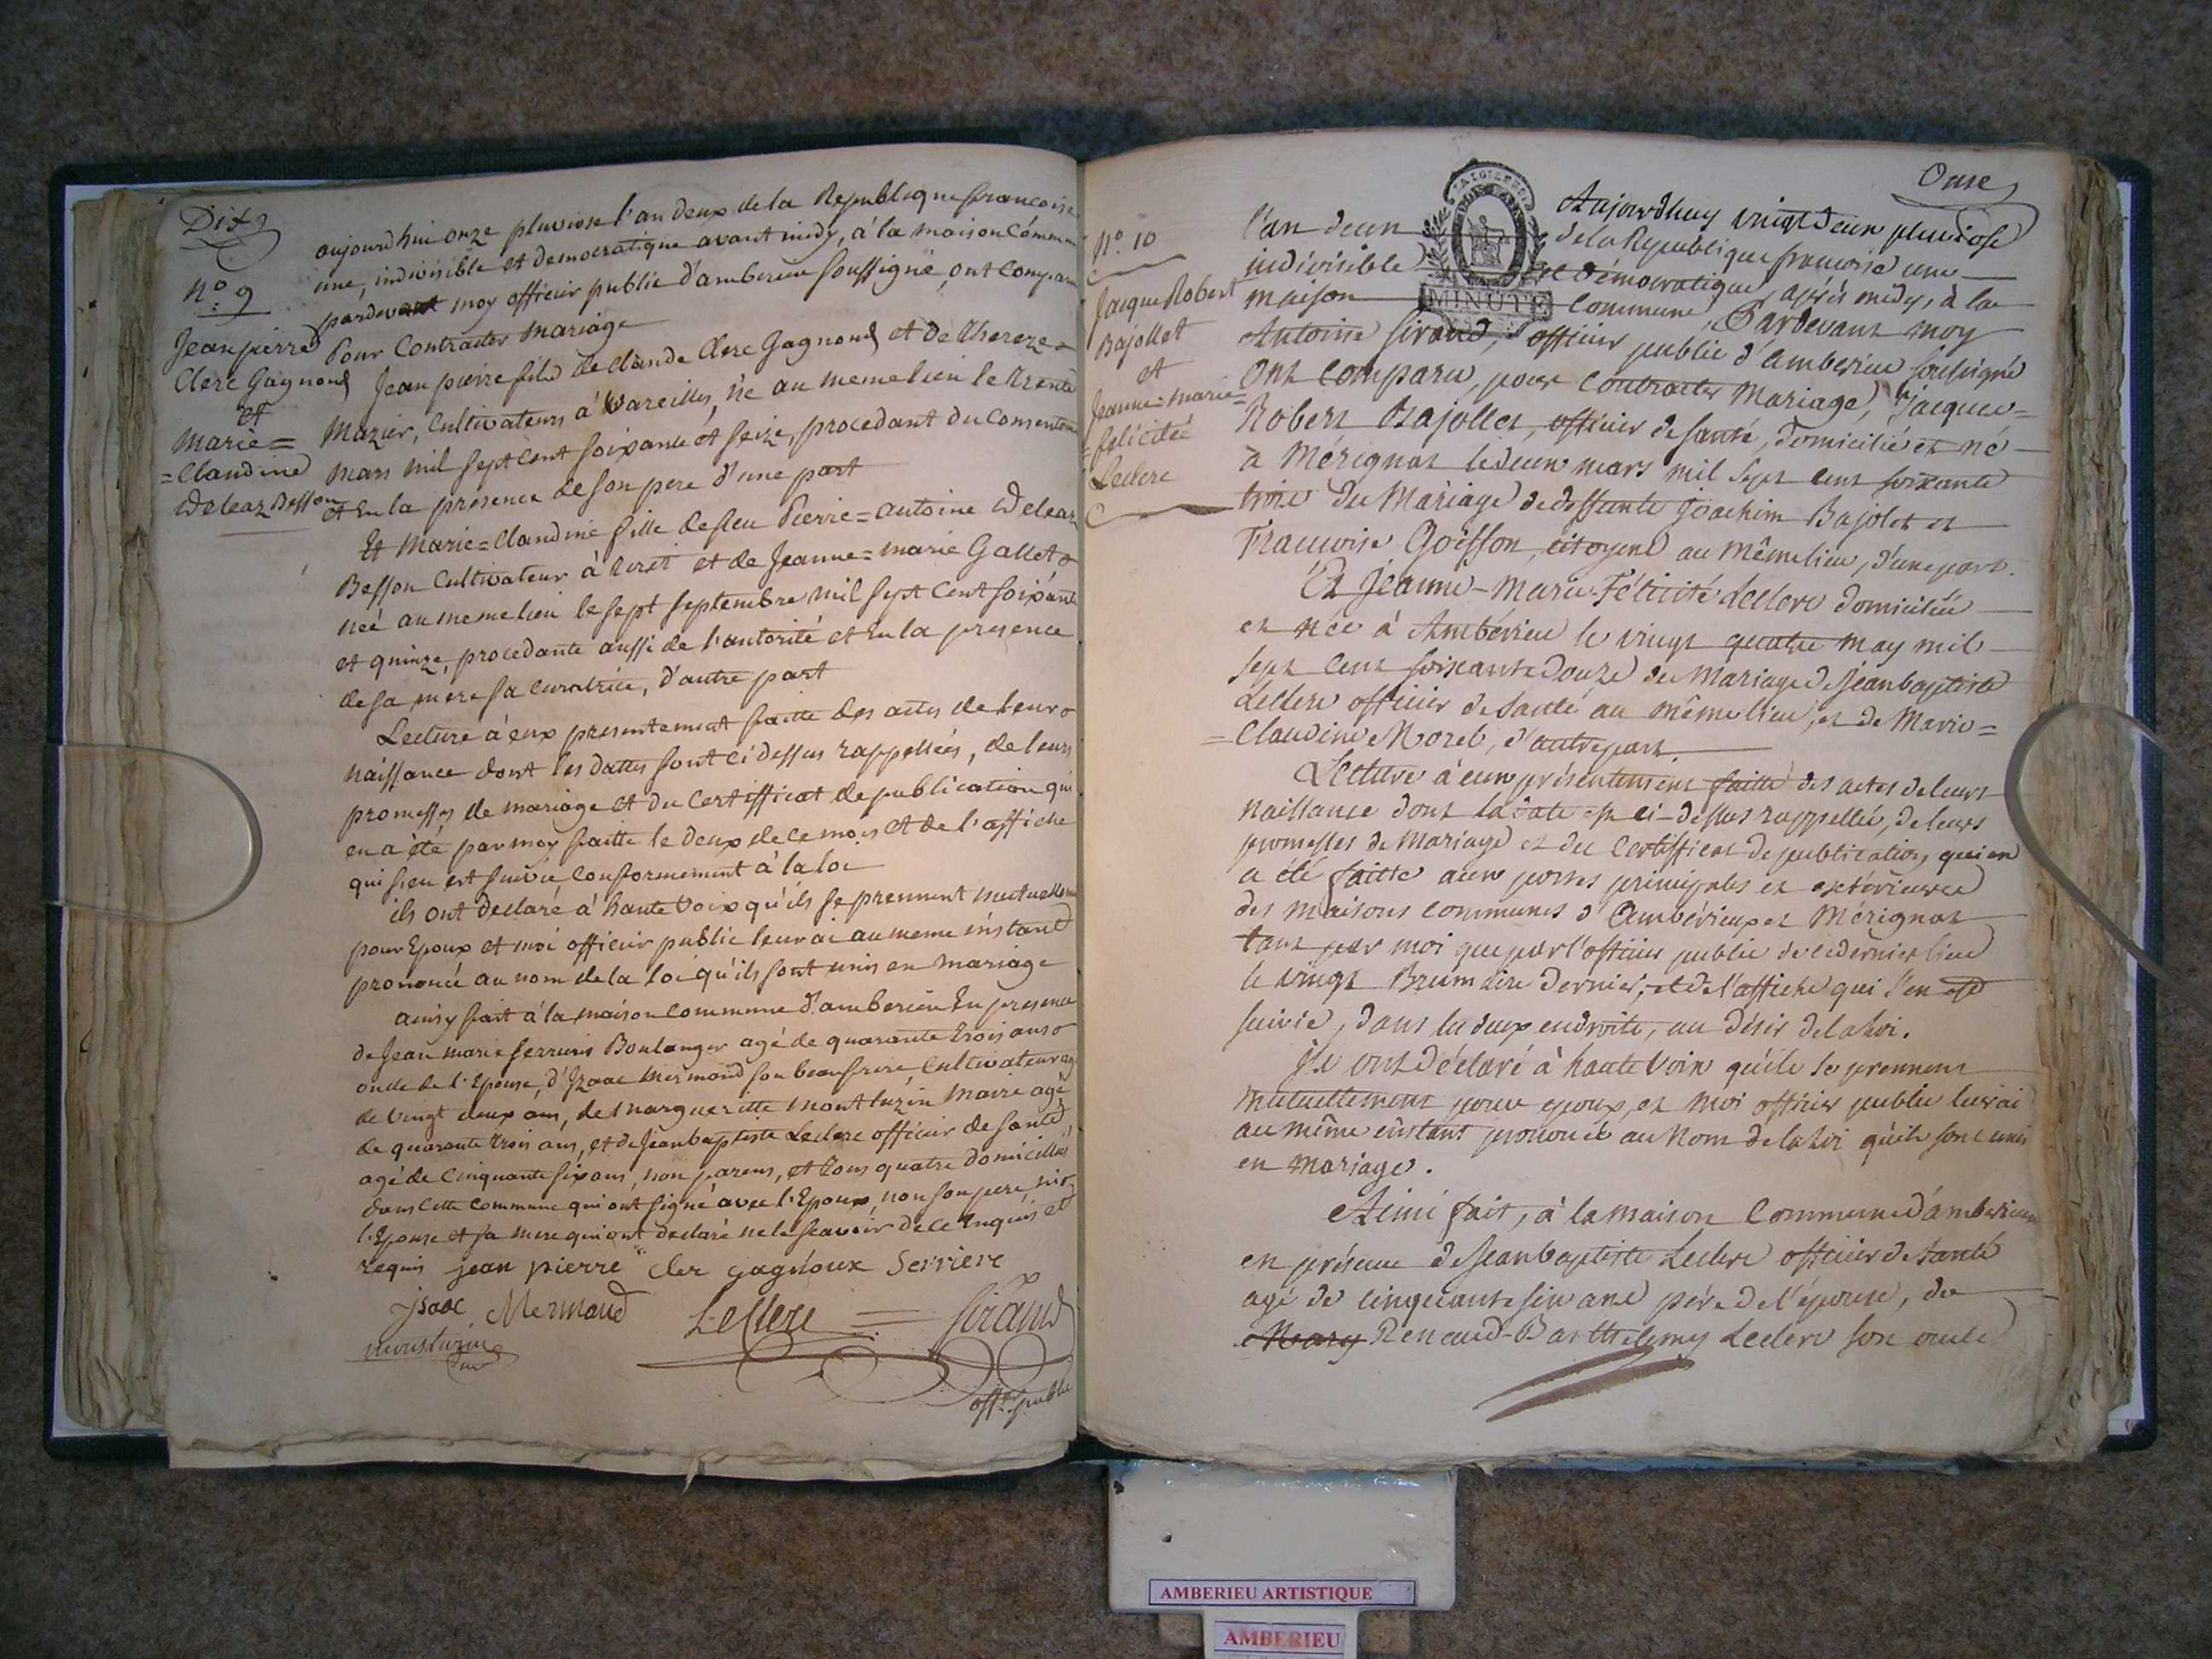 Dix
aujourd'hui onze pluviose l'an deux de la Republique francoise
une, indivisible et democratique avant midy, à la maison Commu
pardevant moy officier public d'amberieu soussigné, ont compar
Pour Contracter Mariage
N.o 9
Jean pierre
Clerc Gagnoud
et
Marie=
=Claudine
Deleaz Besson
Jean pierre fils de Claude Clerc Gagnoud et de Thereze
Mazier, Cultivateurs à Vareilles, né au meme lieu le trente
mars mil sept cent soixante et seize, procedant du consentem
et En la presence de son pere d'une part
Et Marie=Claudine fille de feu Pierre=antoine Deleaz
Besson Cultivateur à tiret et de Jeanne=marie Gallet
née au meme lieu le sept septembre mil sept cent soixante
et quinze, procedante aussi de l'autorité et En la presence
de sa mere sa curatrice, d'autre part
Lecture à eux presentement faitte des actes de leur
naissance dont les dattes sont ci dessus rappellées, de leurs
promesses de mariage et du certifficat de publication qui
en a été par moy faitte le deux de ce mois et de l'affiche
qui s'en est suivie conformement à la loi
ils ont declaré à haute voix qu'ils se prennent mutuellem
pour Epoux et moi officier public leur ai au meme instant
prononcé au nom de la loi qu'ils sont unis en mariage
ainsy fait à la maison commune d'amberieu En presence
de Jean marie ferriere Boulanger agé de quarante trois ans
oncle de l'Epouse, d'Izaac Mermand son beaufrere Cultivateur ag
de vingt deux ans, de Margueritte Montluzin Maire agé
de quarante trois ans, et de Jean baptiste Leclerc officier de santé
agé de cinquante six ans, non parens, et tous quatre domicillés
dans cette commune qui ont signé avec l'Epoux, non son pere, ni
l'Epouse et sa mere qui ont declaré ne le scavoir de ce Enquis et
requis jean pierre cler gagnoux Serriere
isaac Mermand Leclerc = Sirand
off.er public
Onse
Aujourdhuy vingt deux pluviose
l'an deux de la Republique francoise une
indivisible et démocratique, après midy, à la
maison commune, Pardevant moy
Antoine Sirand, officier public d'amberieu soussigné
ont comparu, pour contracter Mariage, Jacques=
N.o 10
Jacque Robert
Bajollet
et
Jeanne=marie=
=félicitée
Leclerc
Robert Bajollet, officier de santé, domicilié et né
a Mérignat le deux mars mil sept cent soixante
trois du Mariage de deffunts Joachim Bajolet et
Francoise Goiffon, citoyens au même lieu, d'une part.
Et Jeanne-Marie-Félicité Leclerc domiciliée
et née à Ambérieu le vingt quatre may mil
sept cent soixante douze du Mariage de Jean baptiste
Leclerc officier de santé au même lieu, et de Marie=
=Claudine Morel, d'autre part.
Lecture à eux présentement faitte des actes de leurs
naissance dont la date est ci-dessus rappellée, de leurs
promesses de Mariage et du certifficat de publication, qui en
a été faitte aux portes principales et extérieures
des maisons communes d'Ambérieux et Mérignat
tant par moi que par l'officier public de ce dernier lieu
le vingt Brumaire dernier, et de l'affiche qui s'en est
suivie, dans les deux endroits, au désir de la Loi.
Ils ont déclaré à haute voix qu'ils se prennent
mutuellement pour epoux, et moi officier public leur ai
au même instant prononcé au Nom de la Loi qu'ils sont unis
en mariage.
Ainsi fait, à la maison commune d'amberieux
en présence de Jean baptiste Leclerc officier de santé
agé de cinquante six ans père de l'épouse, de
Renaud-Barthelemy Leclerc son oncle
MINUTE
AMBERIEU ARTISTIQUE
AMBERIEU